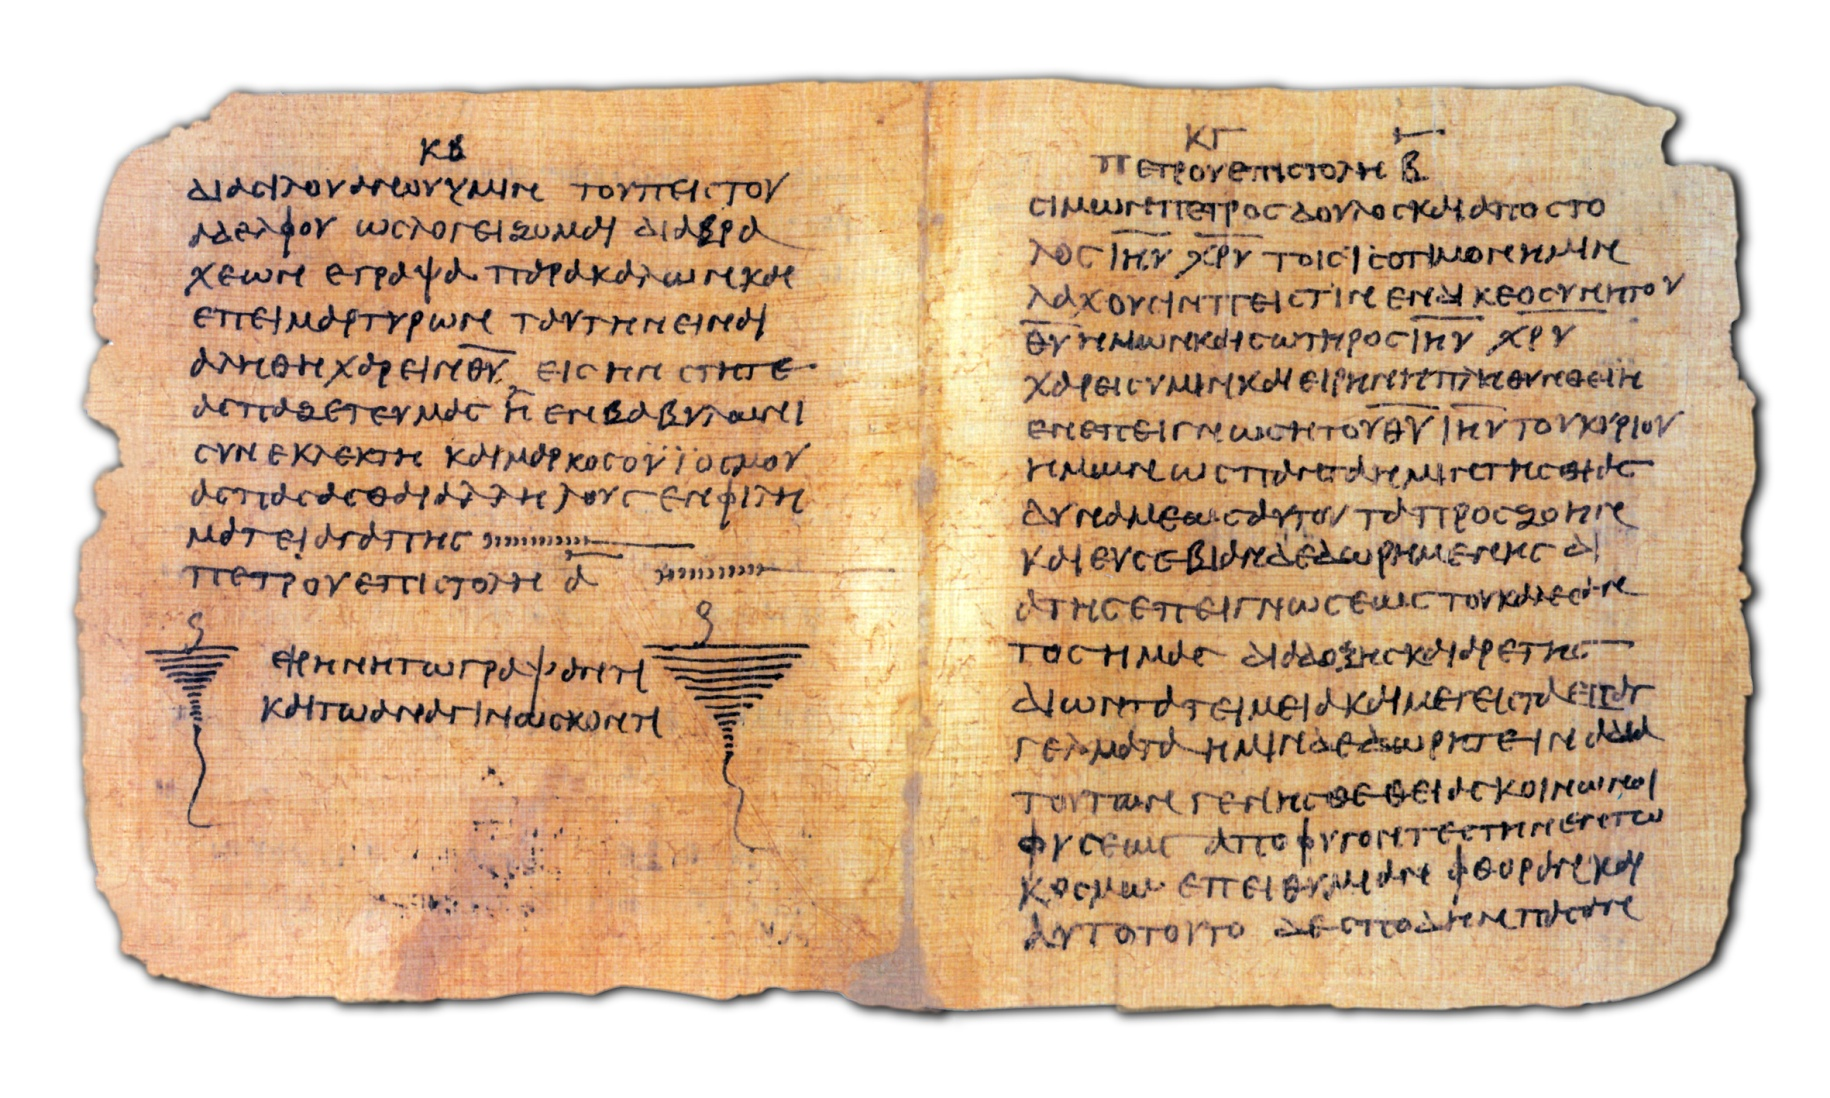 ΚΒ
διασιλουανουυμιν τουπειστου
αδελφου ωσλογειζομαι διαβρα
χεων εγραψα παρακαλωνκαι
επειμαρτυρων ταυτηνειναι
αληθηχαρεινθυ̅ εισηνστητε
ασπαζετευμας η ενβαβυλωνι
συνεκλεκτη καιμαρκοσουϊοσμου
ασπασασθαιαλληλους ενφιλη
ματειαγαπης
πετρουεπιστολη α
ειρηνητωγραψαντι
καιτωαναγινωσκοντι
ΚΓ
πετρουεπιστολη β
σιμωνπετρος δουλοσκαιαποστο
λοσιηυ χρυ τοισισοτιμονημιν
λαχουσιν πειστιν ενδικεοσυνητου
θυημωνκαισωτηροσιηυ χρυ
χαρεισυμινκαιειρηνηπληθυνθειη
ενεπειγνωσητουθυ ιηυτουκυριου
ημων ωσπανταημιντησθιας
δυναμεωσαυτου ταπροσζοην
καιευσεβιανδεδωρημενης δι
ατησεπειγνωσεωστουκαλεσαν
τοσημας διαδοξησκαιαρετης
διωντατειμειακαιμεγεισταεπαγ
γελματα ημινδεδωρητειναδια
τουτων γενησθεθειασκοινωνοι
φυσεως αποφυγοντεστηνεντω
κοσμω επειθυμιαν φθορανκαι
αυτοτουτο δεσπουδηνπασαν